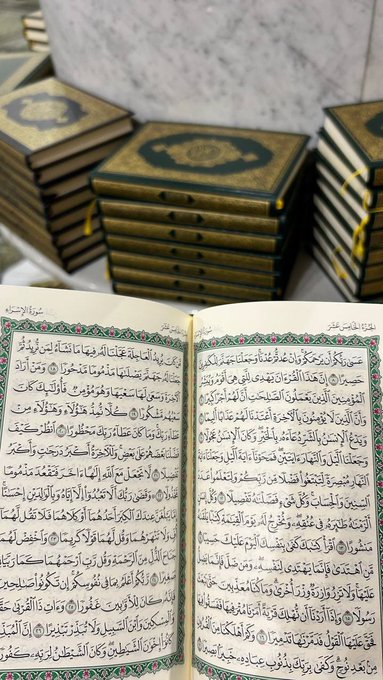 الجزء الخامس عشر
سورة الإسراء
عَسَىٰ رَبُّكُمْ أَن يَرْحَمَكُمْ وَإِنْ عُدتُّمْ عُدْنَا وَجَعَلْنَا جَهَنَّمَ لِلْكَٰفِرِينَ
حَصِيرًا ٨ إِنَّ هَٰذَا ٱلْقُرْءَانَ يَهْدِى لِلَّتِى هِىَ أَقْوَمُ وَيُبَشِّرُ
ٱلْمُؤْمِنِينَ ٱلَّذِينَ يَعْمَلُونَ ٱلصَّٰلِحَٰتِ أَنَّ لَهُمْ أَجْرًا كَبِيرًا ٩
وَأَنَّ ٱلَّذِينَ لَا يُؤْمِنُونَ بِٱلْءَاخِرَةِ أَعْتَدْنَا لَهُمْ عَذَابًا أَلِيمًا ١٠
وَيَدْعُ ٱلْإِنسَٰنُ بِٱلشَّرِّ دُعَآءَهُۥ بِٱلْخَيْرِ وَكَانَ ٱلْإِنسَٰنُ عَجُولًا ١١
وَجَعَلْنَا ٱلَّيْلَ وَٱلنَّهَارَ ءَايَتَيْنِ فَمَحَوْنَآ ءَايَةَ ٱلَّيْلِ وَجَعَلْنَآ ءَايَةَ
ٱلنَّهَارِ مُبْصِرَةً لِّتَبْتَغُوا۟ فَضْلًا مِّن رَّبِّكُمْ وَلِتَعْلَمُوا۟ عَدَدَ
ٱلسِّنِينَ وَٱلْحِسَابَ وَكُلَّ شَىْءٍ فَصَّلْنَٰهُ تَفْصِيلًا ١٢ وَكُلَّ إِنسَٰنٍ
أَلْزَمْنَٰهُ طَٰٓئِرَهُۥ فِى عُنُقِهِۦ وَنُخْرِجُ لَهُۥ يَوْمَ ٱلْقِيَٰمَةِ كِتَٰبًا يَلْقَىٰهُ
مَنشُورًا ١٣ ٱقْرَأْ كِتَٰبَكَ كَفَىٰ بِنَفْسِكَ ٱلْيَوْمَ عَلَيْكَ حَسِيبًا ١٤
مَّنِ ٱهْتَدَىٰ فَإِنَّمَا يَهْتَدِى لِنَفْسِهِۦ وَمَن ضَلَّ فَإِنَّمَا يَضِلُّ
عَلَيْهَا وَلَا تَزِرُ وَازِرَةٌ وِزْرَ أُخْرَىٰ وَمَا كُنَّا مُعَذِّبِينَ حَتَّىٰ نَبْعَثَ
رَسُولًا ١٥ وَإِذَآ أَرَدْنَآ أَن نُّهْلِكَ قَرْيَةً أَمَرْنَا مُتْرَفِيهَا فَفَسَقُوا۟ فِيهَا
فَحَقَّ عَلَيْهَا ٱلْقَوْلُ فَدَمَّرْنَٰهَا تَدْمِيرًا ١٦ وَكَمْ أَهْلَكْنَا مِنَ ٱلْقُرُونِ
مِنۢ بَعْدِ نُوحٍ وَكَفَىٰ بِرَبِّكَ بِذُنُوبِ عِبَادِهِۦ خَبِيرًۢا بَصِيرًا ١٧
مَّن كَانَ يُرِيدُ ٱلْعَاجِلَةَ عَجَّلْنَا لَهُۥ فِيهَا مَا نَشَآءُ لِمَن نُّرِيدُ ثُمَّ
جَعَلْنَا لَهُۥ جَهَنَّمَ يَصْلَىٰهَا مَذْمُومًا مَّدْحُورًا ١٨ وَمَنْ أَرَادَ
ٱلْءَاخِرَةَ وَسَعَىٰ لَهَا سَعْيَهَا وَهُوَ مُؤْمِنٌ فَأُو۟لَٰٓئِكَ كَانَ
سَعْيُهُم مَّشْكُورًا ١٩ كُلًّا نُّمِدُّ هَٰٓؤُلَآءِ وَهَٰٓؤُلَآءِ مِنْ
عَطَآءِ رَبِّكَ وَمَا كَانَ عَطَآءُ رَبِّكَ مَحْظُورًا ٢٠ ٱنظُرْ كَيْفَ
فَضَّلْنَا بَعْضَهُمْ عَلَىٰ بَعْضٍ وَلَلْءَاخِرَةُ أَكْبَرُ دَرَجَٰتٍ وَأَكْبَرُ
تَفْضِيلًا ٢١ لَّا تَجْعَلْ مَعَ ٱللَّهِ إِلَٰهًا ءَاخَرَ فَتَقْعُدَ مَذْمُومًا
مَّخْذُولًا ٢٢ وَقَضَىٰ رَبُّكَ أَلَّا تَعْبُدُوٓا۟ إِلَّآ إِيَّاهُ وَبِٱلْوَٰلِدَيْنِ إِحْسَٰنًا
إِمَّا يَبْلُغَنَّ عِندَكَ ٱلْكِبَرَ أَحَدُهُمَآ أَوْ كِلَاهُمَا فَلَا تَقُل لَّهُمَآ
أُفٍّ وَلَا تَنْهَرْهُمَا وَقُل لَّهُمَا قَوْلًا كَرِيمًا ٢٣ وَٱخْفِضْ لَهُمَا
جَنَاحَ ٱلذُّلِّ مِنَ ٱلرَّحْمَةِ وَقُل رَّبِّ ٱرْحَمْهُمَا كَمَا رَبَّيَانِى
صَغِيرًا ٢٤ رَّبُّكُمْ أَعْلَمُ بِمَا فِى نُفُوسِكُمْ إِن تَكُونُوا۟ صَٰلِحِينَ
فَإِنَّهُۥ كَانَ لِلْأَوَّٰبِينَ غَفُورًا ٢٥ وَءَاتِ ذَا ٱلْقُرْبَىٰ حَقَّهُۥ
وَٱلْمِسْكِينَ وَٱبْنَ ٱلسَّبِيلِ وَلَا تُبَذِّرْ تَبْذِيرًا ٢٦ إِنَّ ٱلْمُبَذِّرِينَ
كَانُوٓا۟ إِخْوَٰنَ ٱلشَّيَٰطِينِ وَكَانَ ٱلشَّيْطَٰنُ لِرَبِّهِۦ كَفُورًا